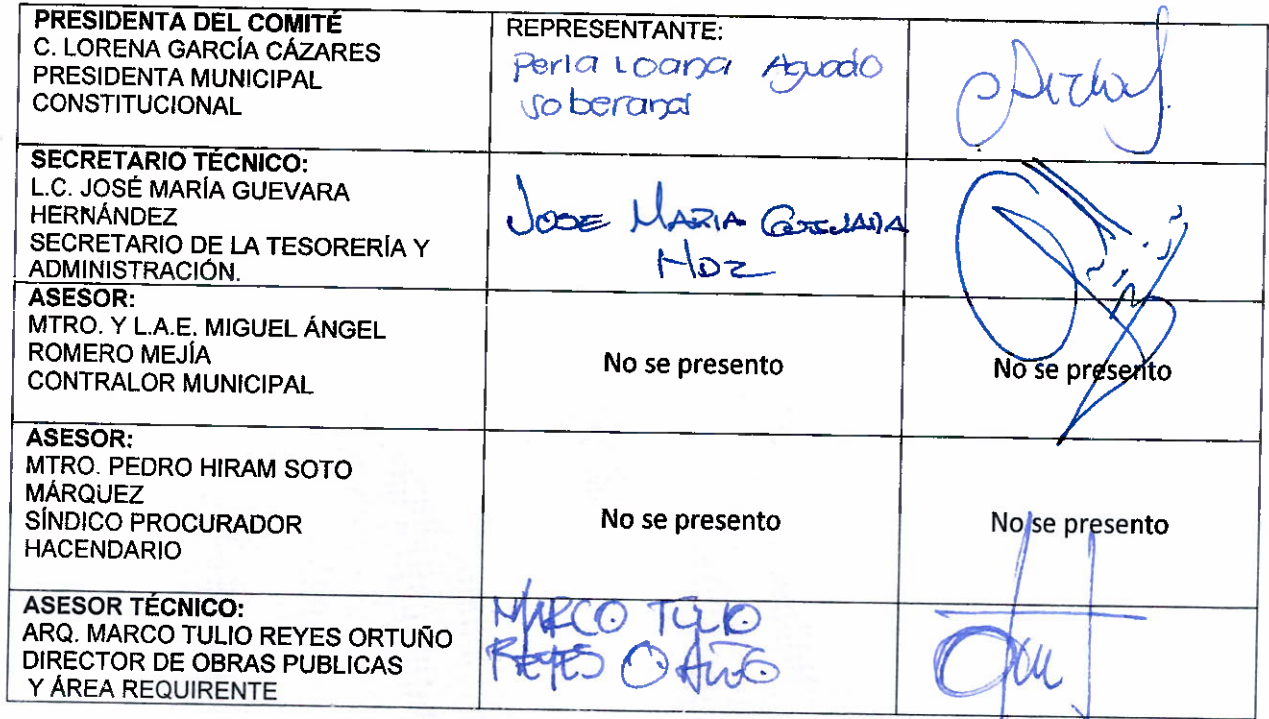 PRESIDENTA DEL COMITÉ
C. LORENA GARCÍA CÁZARES
PRESIDENTA MUNICIPAL
CONSTITUCIONAL
REPRESENTANTE:
Perla Loana Aguado
Soberanes
SECRETARIO TÉCNICO:
L.C. JOSÉ MARÍA GUEVARA
HERNÁNDEZ
SECRETARIO DE LA TESORERÍA Y
ADMINISTRACIÓN.
JOSE MARIA GUEVARA
HDZ
ASESOR:
MTRO. Y L.A.E. MIGUEL ÁNGEL
ROMERO MEJÍA
CONTRALOR MUNICIPAL
No se presento
No se presento
ASESOR:
MTRO. PEDRO HIRAM SOTO
MÁRQUEZ
SÍNDICO PROCURADOR
HACENDARIO
No se presento
No se presento
ASESOR TÉCNICO:
ARQ. MARCO TULIO REYES ORTUÑO
DIRECTOR DE OBRAS PUBLICAS
Y ÁREA REQUIRENTE
MARCO TULIO
REYES ORTUÑO